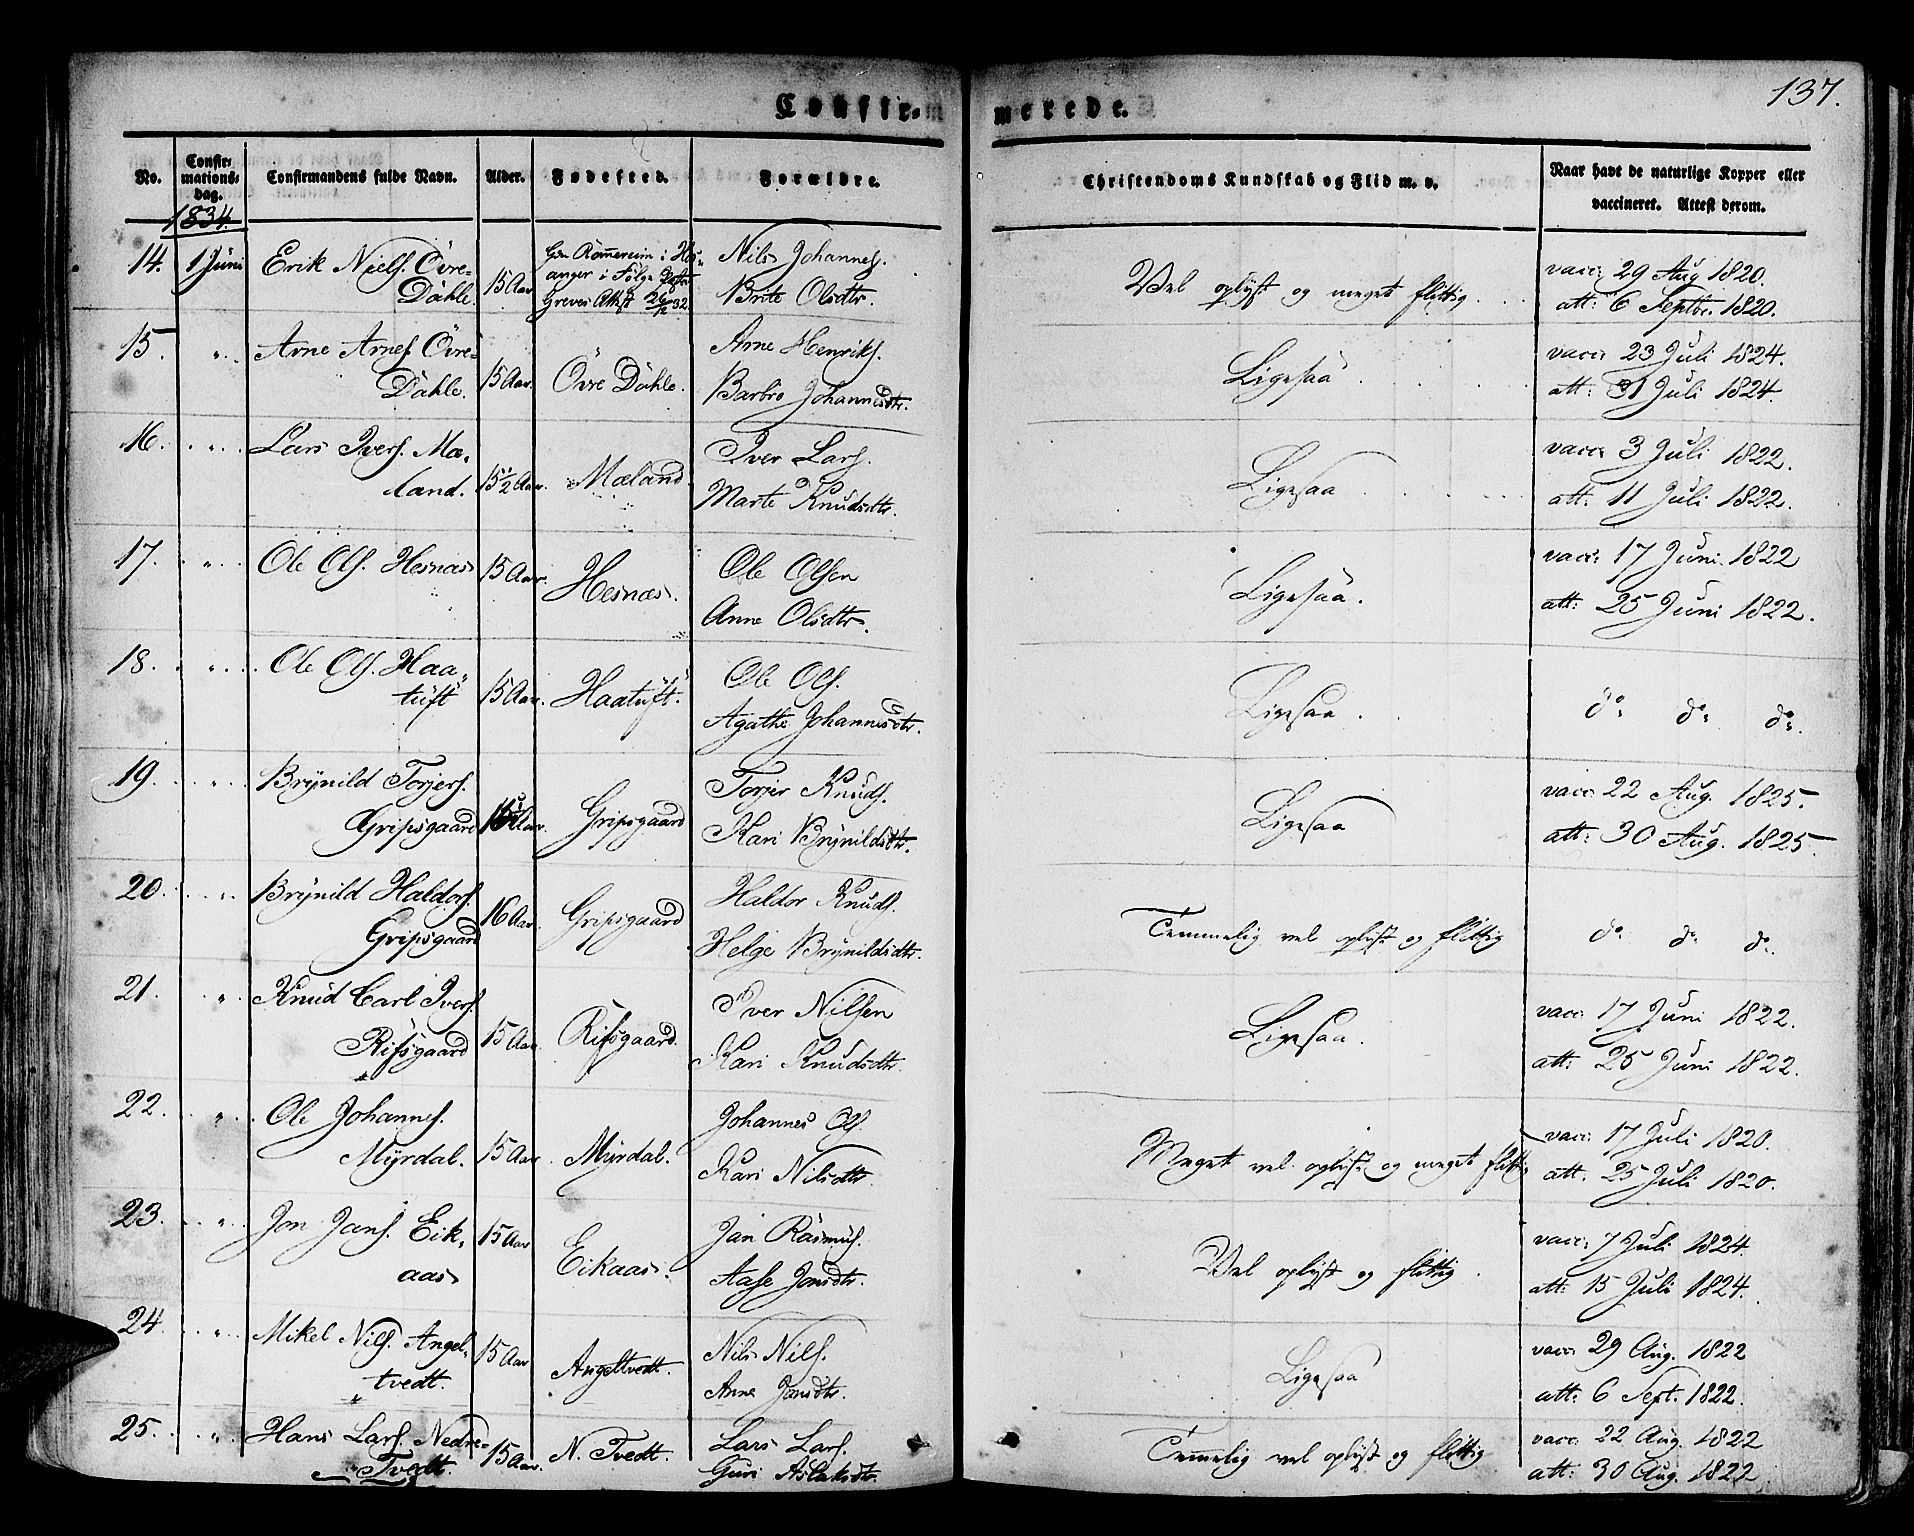 137.
Confir- merede.
No. Confirmations-dag. Confirmandens fulde Navn. Alder. Fødested. Forældre. Christendoms Kundskab og Flid m. v. Naar havt de naturlige Kopper eller vaccineret. Attest derom.
1834.
14. 1 Juni Erik Niels. Övre- Nils Johannes. vacc: 29 Aug 1820.
Dahle. 15 Aar anger i Følge Brite Olsdtr. Vel oplyst og meget flittig. att: 6 Septbr. 1820.
Greves Attest 26/12 32.
15. " Arne Arnes. Övre- Arne Henriks. vacc: 23 Juli 1824.
Dahle. 15 Aar. Övre Dahle. Barbro Johannesdtr. Ligesaa. att: 31 Juli 1824.
16. " Lars Ivers. Mæ- Iver Lars. vacc: 3 Juli 1822.
land. 15 1/2 Aar. Mæland. Marte Knudsdtr. Ligesaa att: 11 Juli 1822.
17. " Ole Ols. Hesnæs 15 Aar. Hesnæs. Ole Olsen vacc: 17 Juni 1822
Anne Olsdtr. Ligesaa. att: 25 Juni 1822.
18. " Ole Ols. Haa- Ole Ols.
tuft 15 Aar. Haatuft. Agathe Johannesdtr. Ligesaa. do. do. do.
19. " Brynild Torjers. Torjer Knuds. vacc: 22 Aug. 1825.
Gripsgaard Aar. Gripsgaard Kari Brynildsdtr. Ligesaa att: 30 Aug. 1825.
20. " Brynild Haldors. Haldor Knuds.
Gripsgaard 16 Aar. Gripsgaard Helge Brynildsdtr. Temmelig vel oplyst og flittig do. do. do.
21. " Knud Carl Ivers. Iver Nilsen vacc: 17 Juni 1822.
Rifsgaard 15 Aar. Rifsgaard. Kari Knudsdtr. Ligesaa. att: 25 Juni 1822.
22. " Ole Johannes. Johannes Ols. vacc: 17 Juli 1820.
Myrdal. 15 Aar. Myrdal. Kari Nilsdtr. Meget vel oplyst og meget flittig att. 25 Juli 1820.
23. " Jon Jans. Eik- Jan Rasmus. vacc: 7 Juli 1824.
aas 15 Aar Eikaas. Aase Jonsdtr. Vel oplyst og flittig. att: 15 Juli 1824.
24. " Mikel Nils. Angel- Nils Nils. vacc: 29 Aug. 1822
tvedt. 15 Aar Angeltvedt. Anne Jansdtr. Ligesaa att: 6 Sept. 1822.
25. " Hans Lars. Nedre- Lars Lars. vacc: 22 Aug. 1822
Tvedt. 15 Aar. N. Tvedt. Guri Aslaksdtr. Temmelig vel oplyst og flittig att: 30 Aug. 1822.